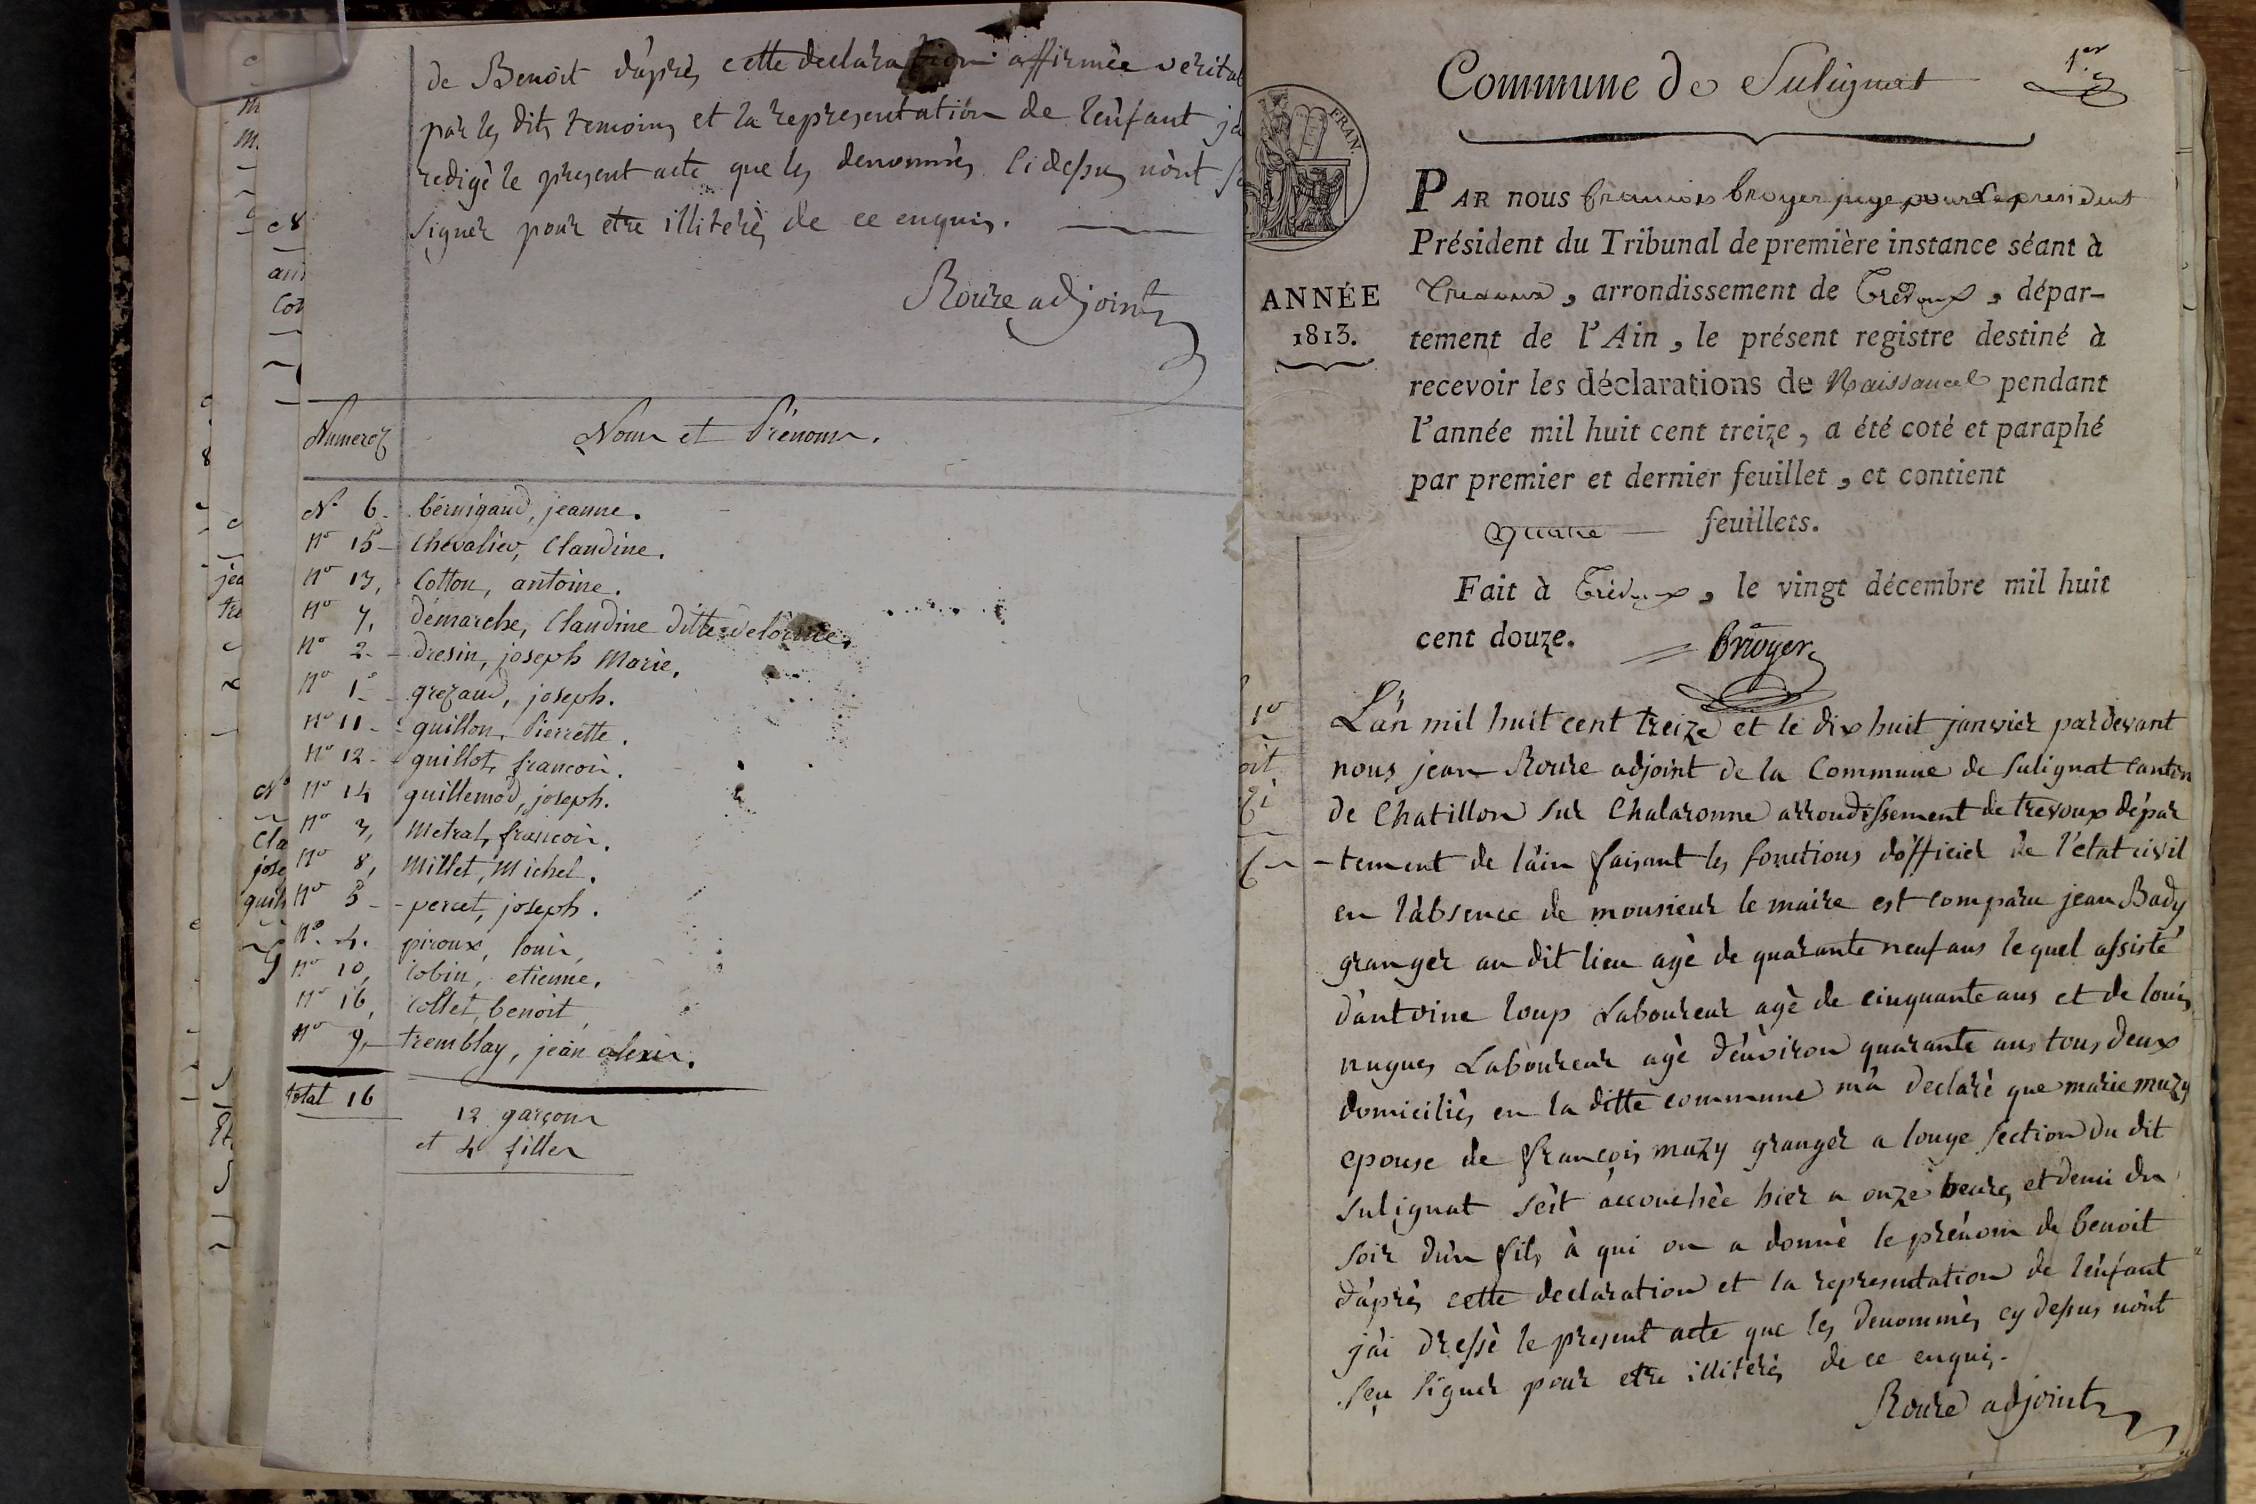 de Benoit d'après cette declaration affirmée
par les dits temoins et la representation de l'enfant
redigé le present acte que les denommés cidessus n'ont
signer pour etre illiterés de ce enquis.
Roure adjoint
Numeros
Noms et Prénoms.
N° 6 - bérnigaud, jeanne.
N° 15 - Chevalier, Claudine.
N° 13, Cotton, antoine.
N° 7, démarche, Claudine ditte delorme,
N° 2 - dresin, joseph Marie.
N° 1 - grezaud, joseph.
N° 11 - guillon, Pierrette.
N° 12 - guillot, francois.
N° 14 guillemod, joseph.
N° 3, Metral, francois.
N° 8, Millet, Michel.
N° 5 - percet, joseph.
N° 4. piroux, louis,
N° 10, etienne.
N° 16, benoit
N° 9, - tremblay, jean alexis.
total 16
12 garçons
et 4 filles
Commune de Sulignat
1.er
FRAN.
PAR NOUS francois broyer juge pour le president
Président du Tribunal de première instance séant à
Trevoux, arrondissement de Trévoux, dépar-
ANNÉE
1813.
tement de l'Ain, le présent registre destiné à
recevoir les déclarations de Naissances pendant
l'année mil huit cent treize, a été coté et paraphé
par premier et dernier feuillet, et contient
quatre feuillets.
Fait à Trévoux, le vingt décembre mil huit
cent douze.
broyer
L'an mil huit cent treize et le dix huit janvier pardevant
nous jean Roure adjoint de la Commune de Sulignat canton
de Chatillon sur Chalaronne arrondissement de trevoux dépar
-tement de l'ain faisant les fonctions d'officier de l'état civil
en l'absence de monsieur le maire est comparu jean Bady
granger au dit lieu agé de quarante neuf ans lequel assisté
d'antoine loup Laboureur agé de cinquante ans et de louis
nugues Laboureur agé d'environ quarante ans tous deux
domiciliés en la ditte commune m'a declaré que marie muzy
epouse de françois muzy granger a longe section du dit
sulignat s'est accouchée hier a onze heures et demi du
soir d'un fils à qui on a donné le prénom de benoit
d'après cette declaration et la representation de l'enfant
j'ai dressé le present acte que les denommés cy dessus n'ont
sçu signer pour etre illiterés de ce enquis.
Roure adjoint